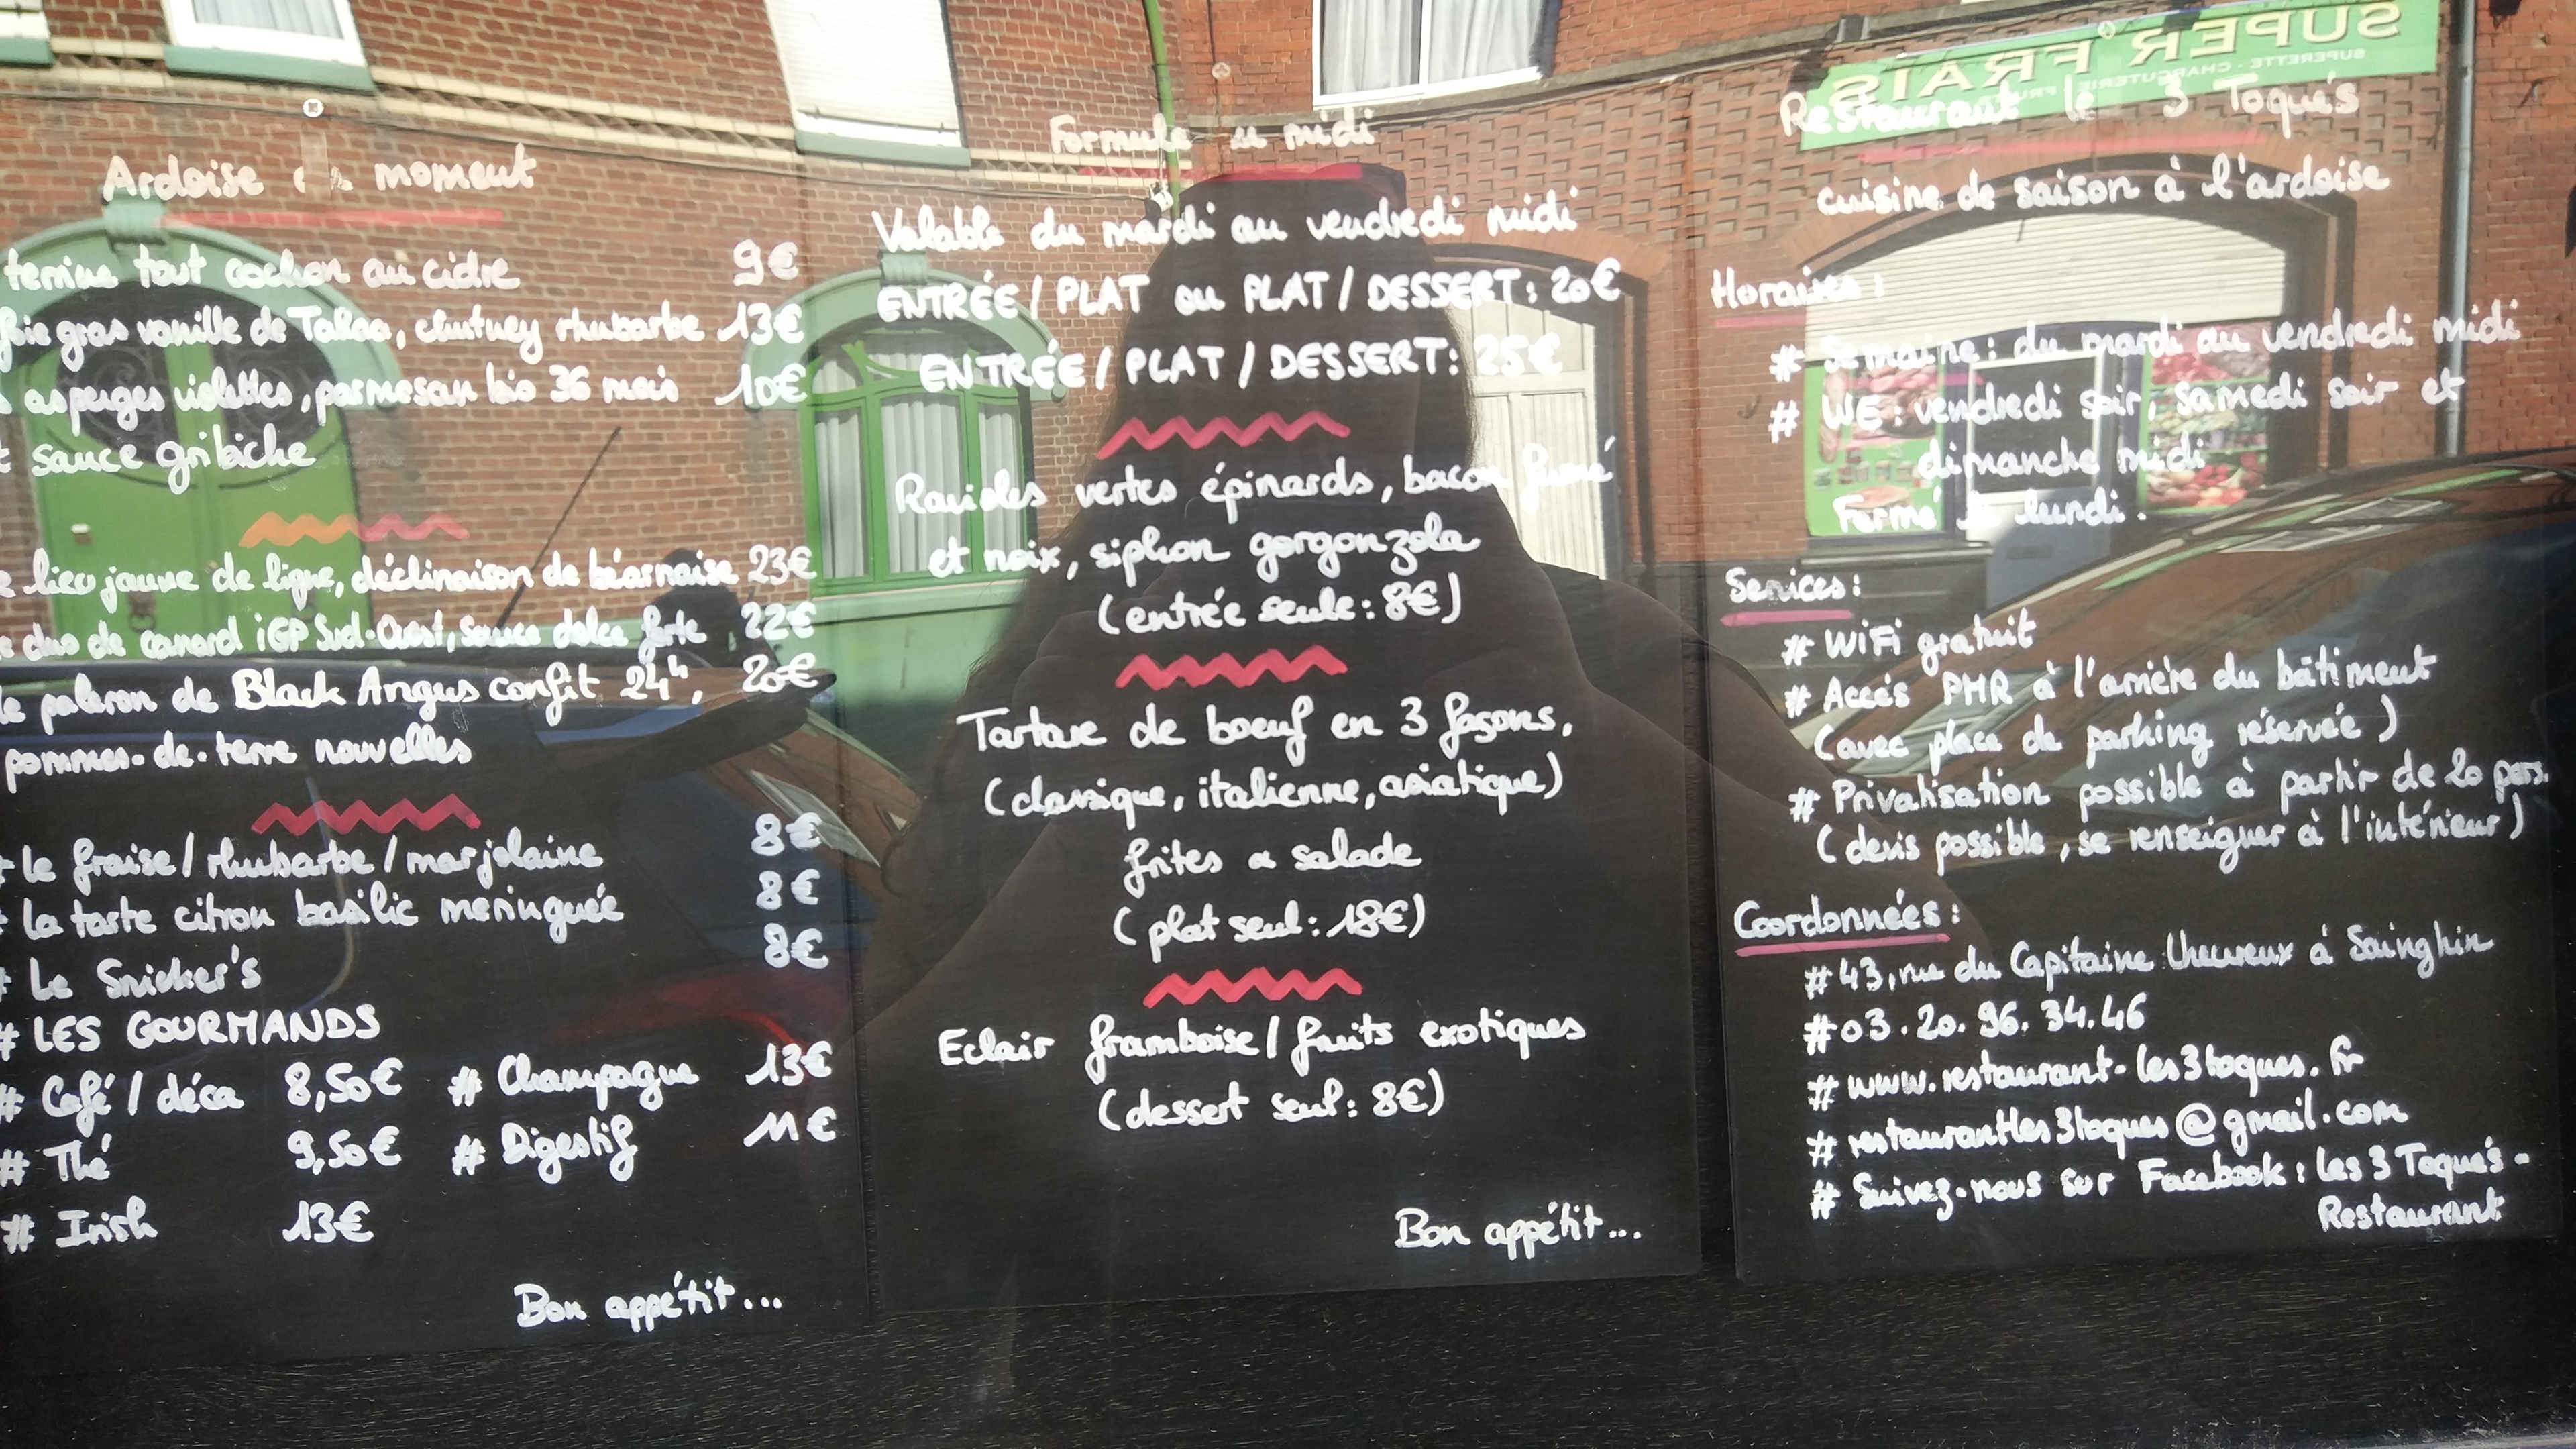 Ardoise moment
terrine tout cochon au cidre 9€
foie gras vanille de Tahaa, chutney rhubarbe 13€
asperges violettes, parmesan bio 36 mois 10€
sauce gribiche
lieu jaune de ligne, déclinaison de béarnaise 23€
duo de canard iGP Sud-Ouest, sauce dolce forte 22€
le paleron de Black Angus confit 24h, 20€
pommes-de-terre nouvelles
# le fraise/rhubarbe/marjolaine 8€
# la tarte citron basilic meringuée 8€
# Le Snicker's 8€
# LES GOURMANDS
# Café / déca 8,50€ # Champagne 13€
# Thé 9,50€ # Digestif 11€
# Irish 13€
Bon appétit...
Formule midi
Valable du mardi au vendredi midi
ENTRÉE / PLAT ou PLAT / DESSERT : 20€
ENTRÉE / PLAT / DESSERT : 25€
Ravioles vertes épinards, bacon fumé
et noix, siphon gorgonzola
(entrée seule : 8€)
Tartare de boeuf en 3 façons,
(classique, italienne, asiatique)
frites & salade
(plat seul : 18€)
Eclair framboise / fruits exotiques
(dessert seul : 8€)
Bon appétit...
SUPER FRAIS
SUPERETTE - CHARCUTERIE
Restaurant le 3 Toqués
cuisine de saison à l'ardoise
Horaires :
# Semaine : du mardi au vendredi midi
# WE : vendredi soir, samedi soir et
dimanche midi
Fermé le lundi.
Services :
# WiFi gratuit
# Accés PMR à l'arrière du bâtiment
(avec place de parking réservée)
# Privatisation possible à partir de 20 pers.
(devis possible, se renseigner à l'intérieur)
Coordonnées :
# 43, rue du Capitaine Lheureux à Sainghin
# 03.20.96.34.46
# www.restaurant-les3toques.fr
# restaurantles3toques@gmail.com
# Suivez-nous sur Facebook : Les 3 Toqués -
Restaurant